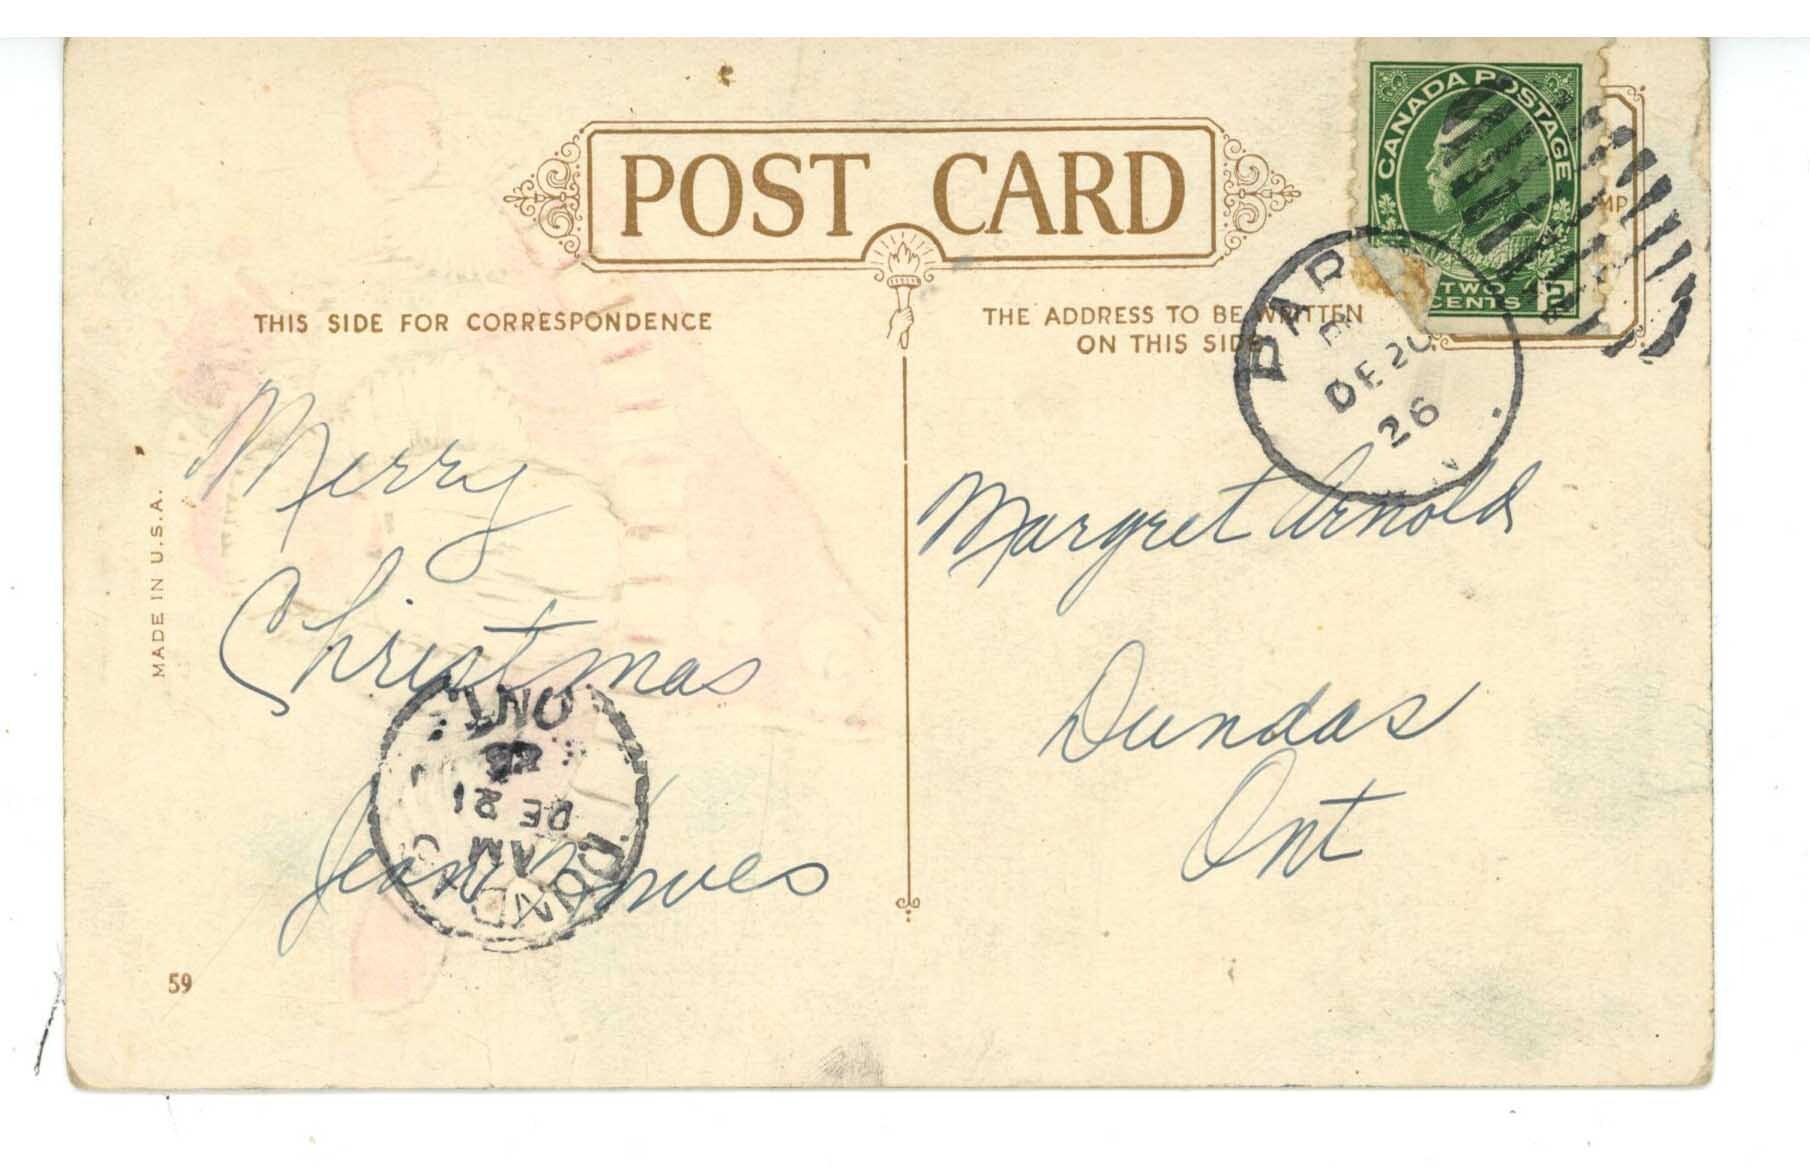 POST CARD
THIS SIDE FOR CORRESPONDENCE
THE ADDRESS TO BE WRITTEN
ON THIS SIDE
CANADA POSTAGE
TWO
CENTS
2
DE 20
26
Merry
Christmas
Jean
Margret Arnold
Dundas
Ont
ONT.
DE 21
AM
MADE IN U.S.A.
59